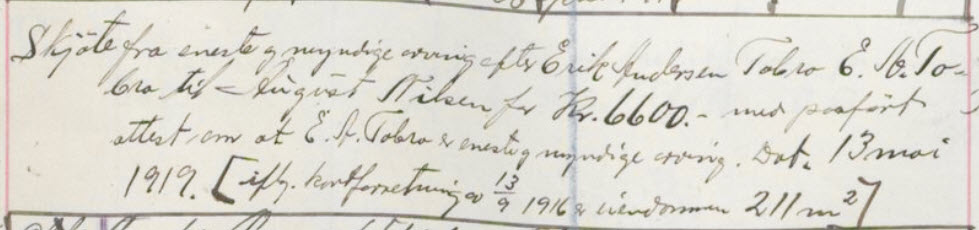 Skjöte fra eneste g myndige arving efter Erik Andersen Tobro E. A. To-
bro til August Nilsen for Kr. 6600.- med paaført
attest om at E. A. Tobro er eneste g myndige arving. Dat. 13 mai
1919. [ifly. kartforretning av 13/9 1916 er eiendommen 211 m²]